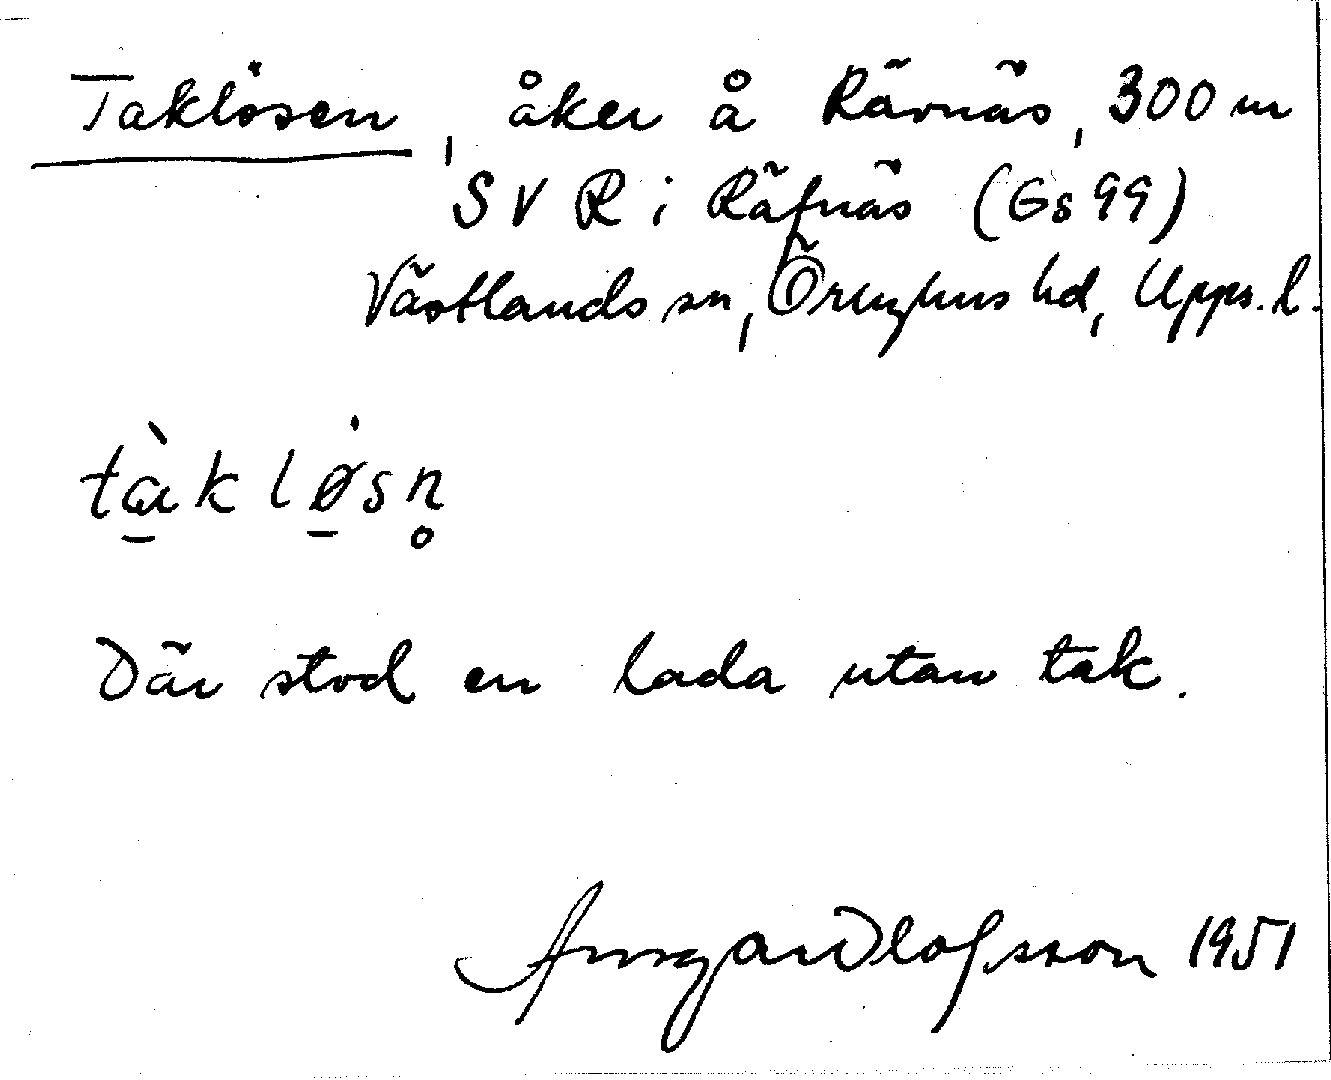 Taklösen, åker å Rävnäs, 300 m
SV R i Räfnäs (Gs 99)
Västlands sn, Örbyhus hd, Upps. l.
tàkløsn̥
Där stod en lada utan tak.
Olofsson 1951